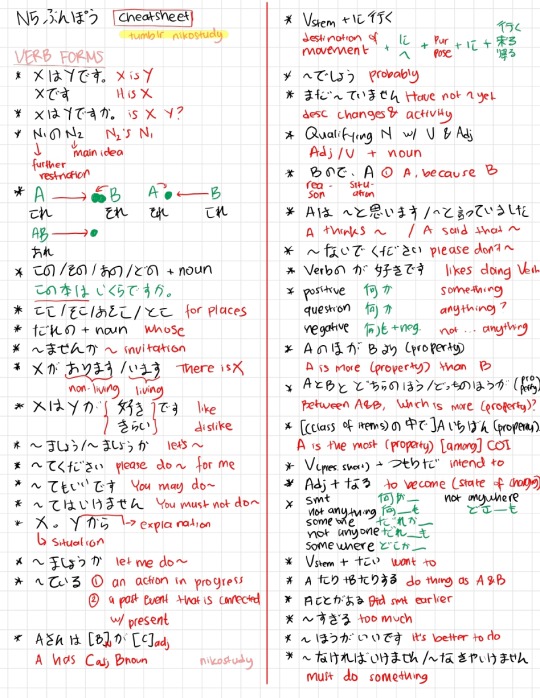 N5 ぶんぽう cheatsheet
tumblr nikostudy
VERB FORMS
* XはYです。 X is Y
Xです It is X
* XはYですか。 is X Y?
* N1のN2 N2's N1
further restriction
main idea
* A B A B
これ それ それ これ
AB
あれ
* この/その/あの/どの + noun
この本はいくらですか。
* ここ/そこ/あそこ/どこ for places
* だれの + noun whose
* ~ませんか ~ invitation
* Xが あります/います There is X
non-living living
* XはYが{好き/きらい}です like
dislike
* ~ましょう/~ましょうか let's~
* ~てください please do~ for me
* ~てもいいです You may do~
* ~てはいけません You must not do~
* X。Yから → explanation
↳ situation
* ~ましょうか let me do~
* ~ている ① an action in progress
② a past event that is connected
w/ present
* Aさんは [B]が [C]adj
A has Cadj Bnoun
nikostudy
* Vstem + に行く
destination of movement + に へ + purpose + に + 行く 来る 帰る
* ~でしょう probably
* まだ~ていません Have not ~ yet
desc changes & activity
* Qualifying N w/ V & Adj
Adj/V + noun
* Bので、A ① A, because B
reason situation
* Aは ~と思います/~と言っていました
A thinks ~ / A said that ~
* ~ないでください please don't~
* Verbのが好きです likes doing Verb
* positive 何か something
question 何か anything?
negative 何も + neg. not ... anything
* AのほがBより (property)
A is more (property) than B
* AとBと どちらのほう/どっちのほうが (property)
Between A&B, which is more (property)?
* [(class of items) の中で] Aいちばん (property)
A is the most (property) [among] COI
* V(pres. short) + つもりだ intend to
* Adj + なる to become (state of change)
* smt 何か__ not anywhere
not anything 何__も どこ__も
someone だれか__
not anyone だれ__も
somewhere どこか__
* Vstem + たい want to
* AたりBたりする do thing as A&B
* Aことがある Did smt earlier
* ~すぎる too much
* ~ほうがいいです it's better to do
* ~なければいけません/~なきゃいけません
must do something